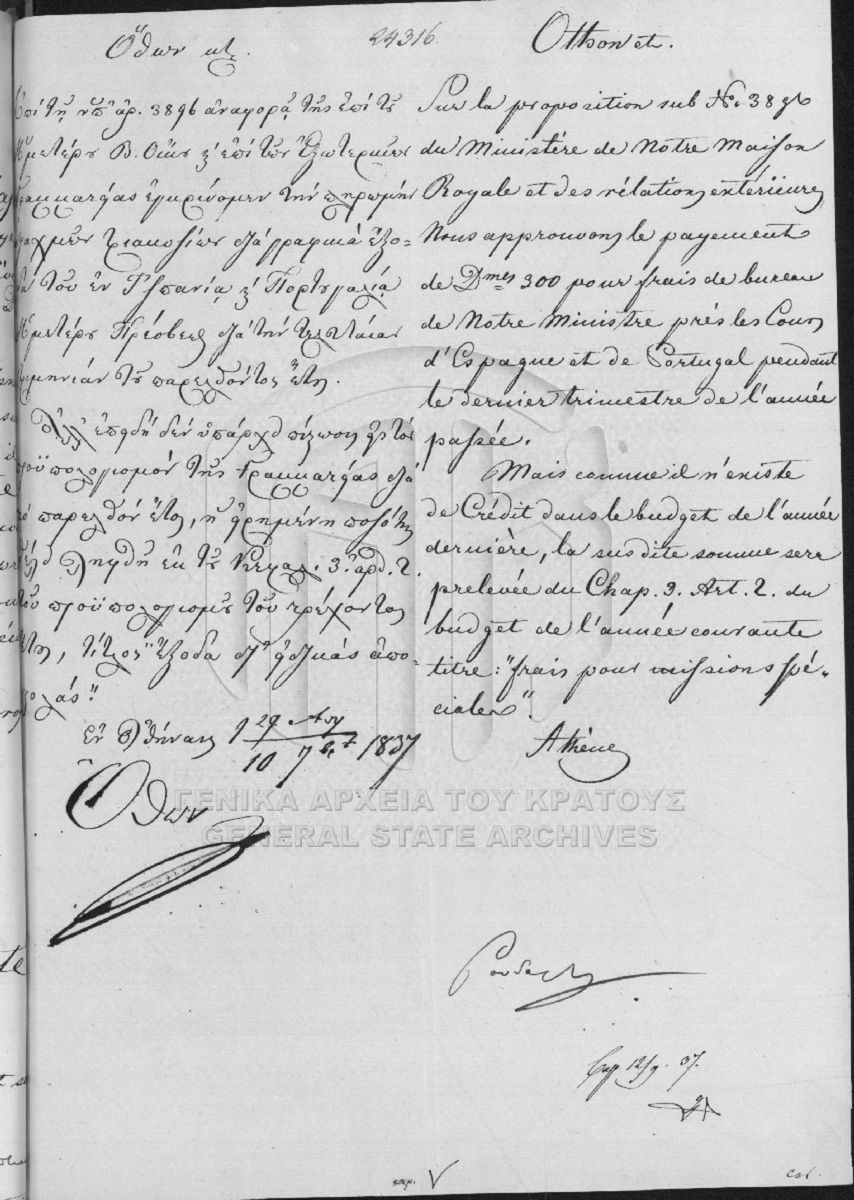 24316
Ὄθων κτλ.
Ἐπὶ τῇ ὑπ' ἀρ. 3896 ἀναφορᾷ τῆς ἐπὶ τοῦ
Ἡμετέρου Β. Οἴκου κ' ἐπὶ τῶν Ἐξωτερικῶν
Γραμματείας ἐγκρίνομεν τὴν πληρωμὴν
δραχμῶν τριακοσίων διὰ γραφικὰ ἔξο-
δα τοῦ ἐν Ἱσπανίᾳ κ' Πορτογαλίᾳ
Ἡμετέρου Πρέσβεως διὰ τὴν τελευταίαν
τριμηνίαν τοῦ παρελθόντος ἔτους.
Ἀλλ' ἐπειδὴ δὲν ὑπάρχει πίστωσις εἰς τὸν
προϋπολογισμὸν τῆς Γραμματείας διὰ
τὸ παρελθὸν ἔτος, ἡ εἰρημένη ποσότης
θέλει ληφθῆ ἐκ τοῦ Κεφαλ. 3. ἄρθ. 2.
τοῦ προϋπολογισμοῦ τοῦ τρέχοντος
ἔτους, τίτλος "Ἔξοδα δι' εἰδικὰς ἀπο-
στολάς."
Ἐν Ἀθήναις 29 Αυγ / 10 7βρ. 1837
Ὄθων
Otthon etc.
Sur la proposition sub No. 3896
du Ministère de Notre Maison
Royale et des rélations extérieures
Nous approuvons le payement
de Dmes 300 pour frais de bureau
de Notre Ministre près les Cours
d'Espagne et de Portugal pendant
le dernier trimestre de l'année
passée.
Mais comme il n'existe
de Crédit dans le budget de l'année
dernière, la susdite somme sera
prelevée du Chap. 3. Art. 2. du
budget de l'année courante
titre: "frais pour missions spé-
ciales".
Athènes
12/9. 37.
ΓΕΝΙΚΑ ΑΡΧΕΙΑ ΤΟΥ ΚΡΑΤΟΥΣ
GENERAL STATE ARCHIVES